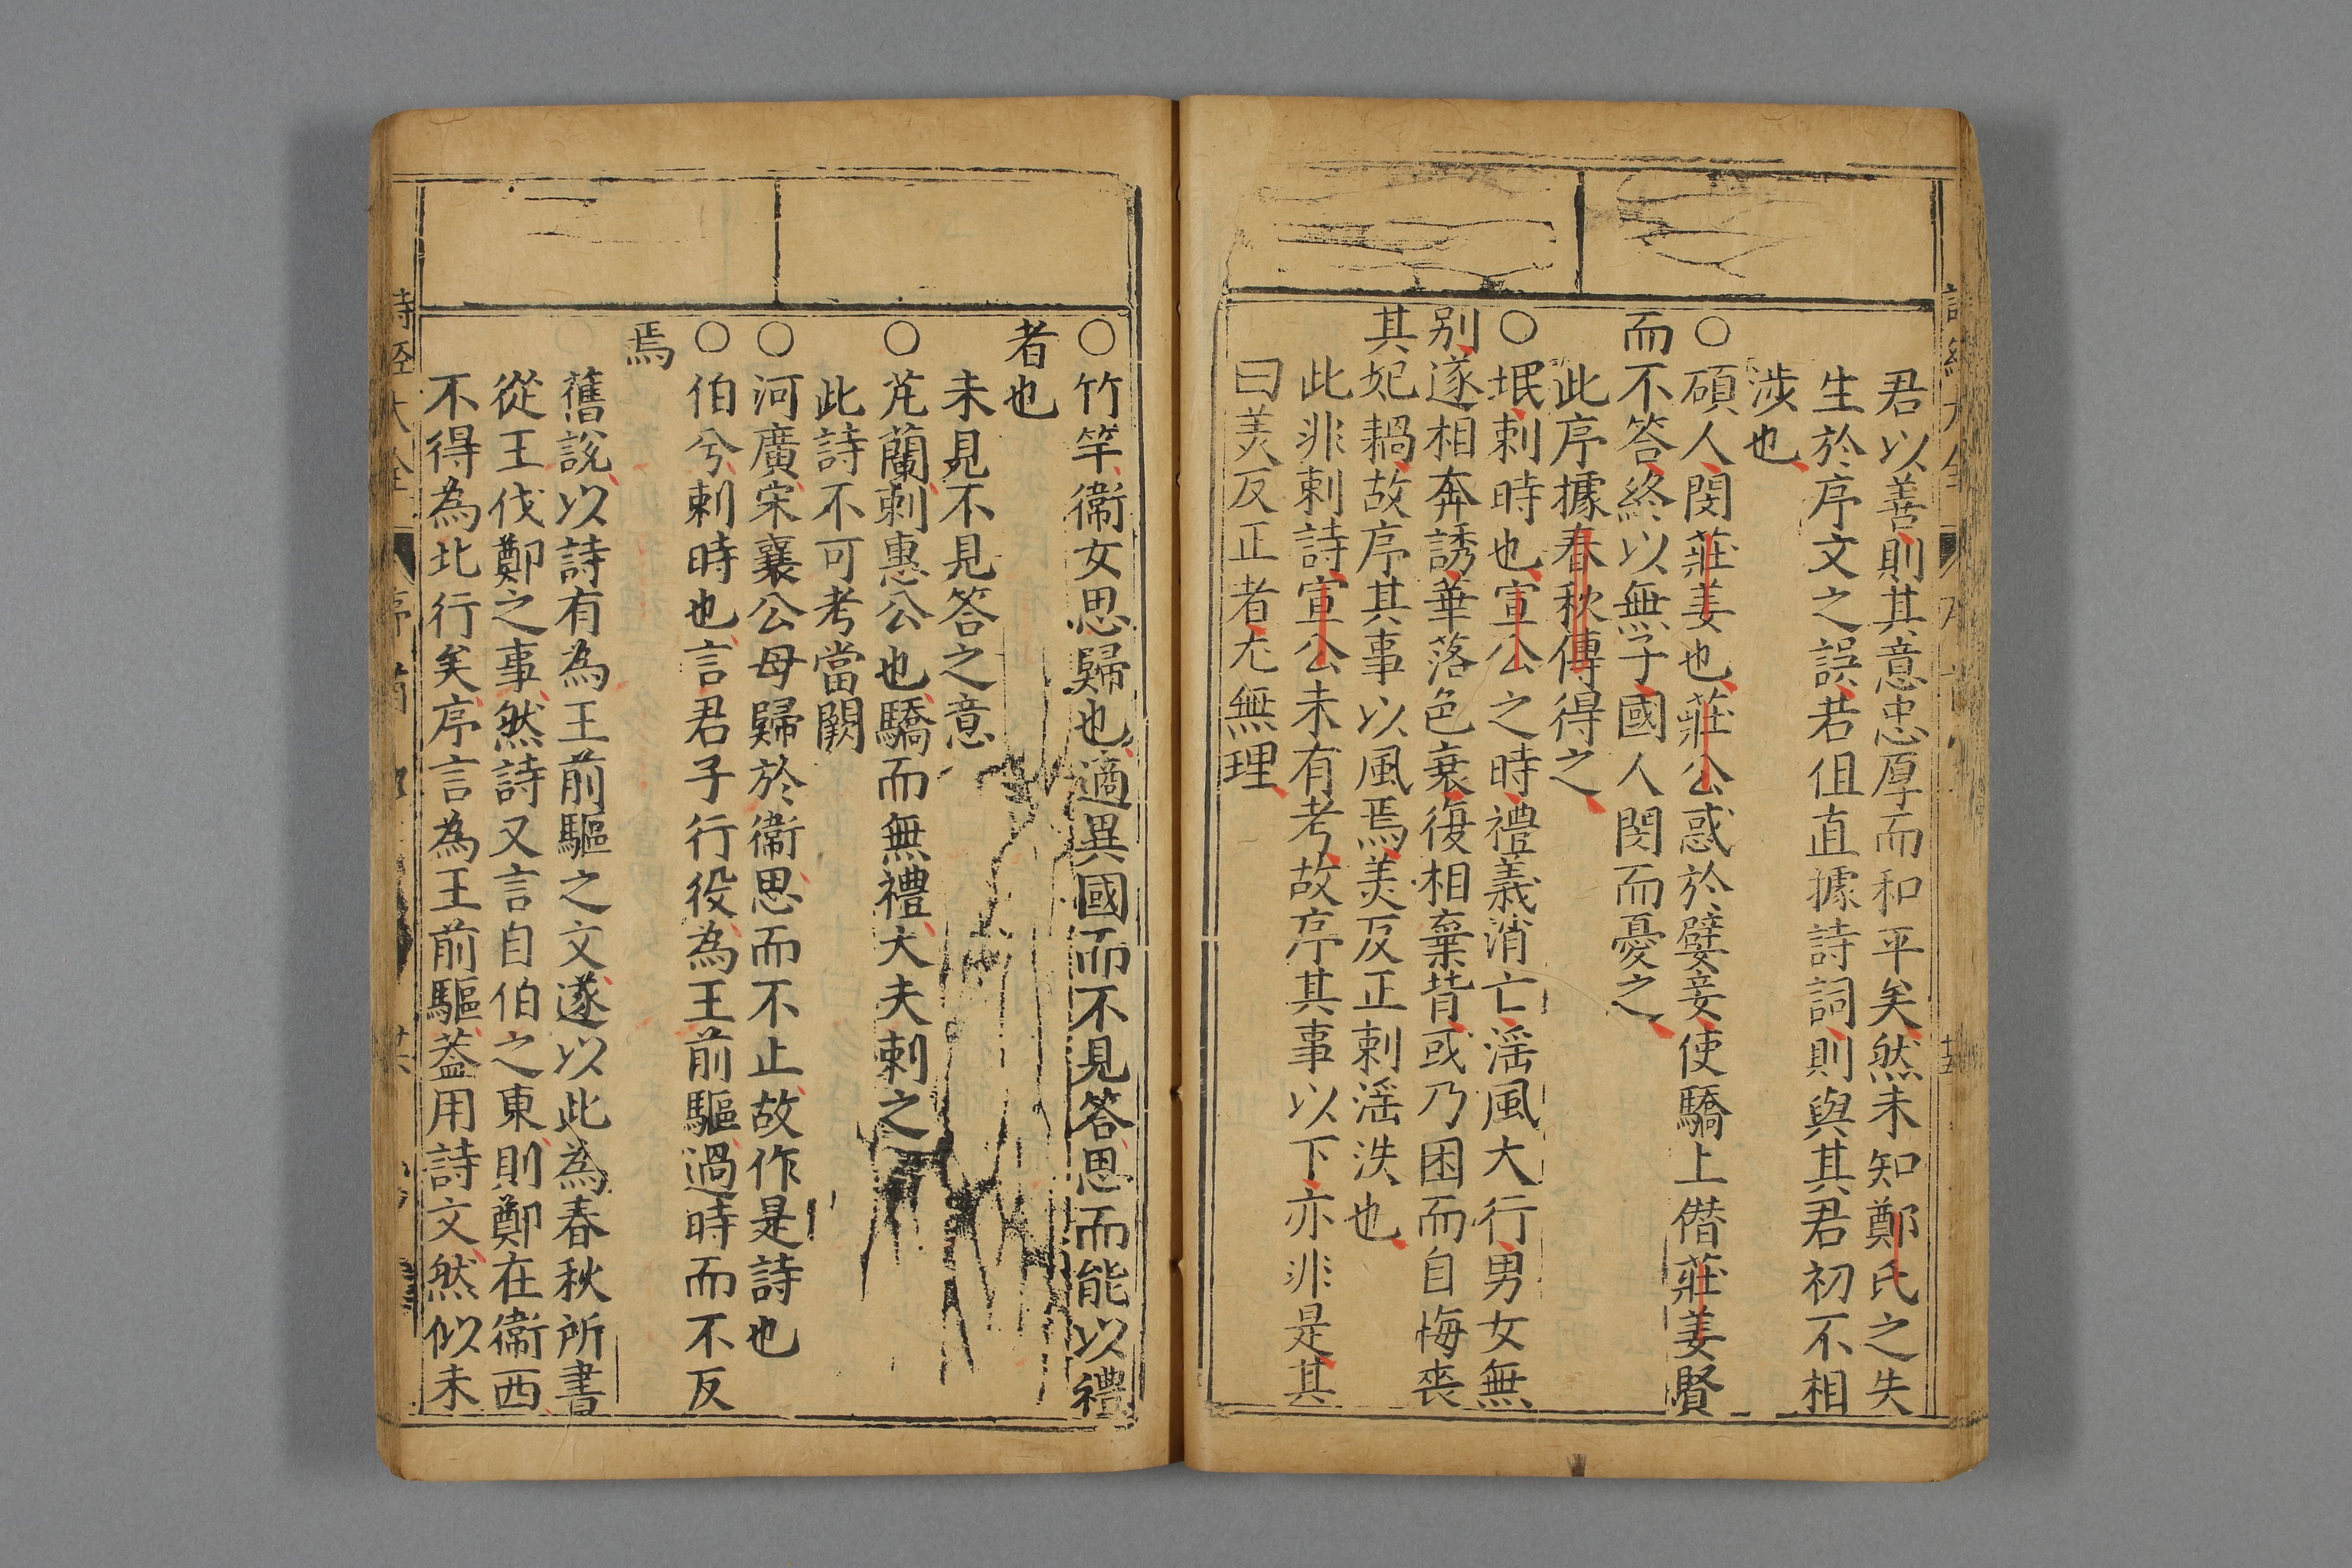 君以善則其意忠厚而和平矣然未知鄭氏之失
生於序文之誤若但直據詩詞則與其君初不相
涉也
○碩人閔莊姜也莊公惑於嬖妾使驕上僭莊姜賢
而不答終以無子國人閔而憂之
此序據春秋傳得之
○氓刺時也宣公之時禮義消亡滛風大行男女無
别遂相奔誘華落色衰復相棄背或乃困而自悔喪
其妃耦故序其事以風焉美反正刺滛泆也
此非刺詩宣公未有考故序其事以下亦非是其
曰美反正者尤無理
○竹竿衞女思歸也適異國而不見答思而能以禮
者也
未見不見答之意
○芄蘭刺惠公也驕而無禮大夫刺之
此詩不可考當闕
○河廣宋襄公母歸於衞思而不止故作是詩也
○伯兮刺時也言君子行役為王前驅過時而不反
焉
舊說以詩有為王前驅之文遂以此為春秋所書
從王伐鄭之事然詩又言自伯之東則鄭在衞西
不得為此行矣序言為王前驅葢用詩文然似未
詩經大全